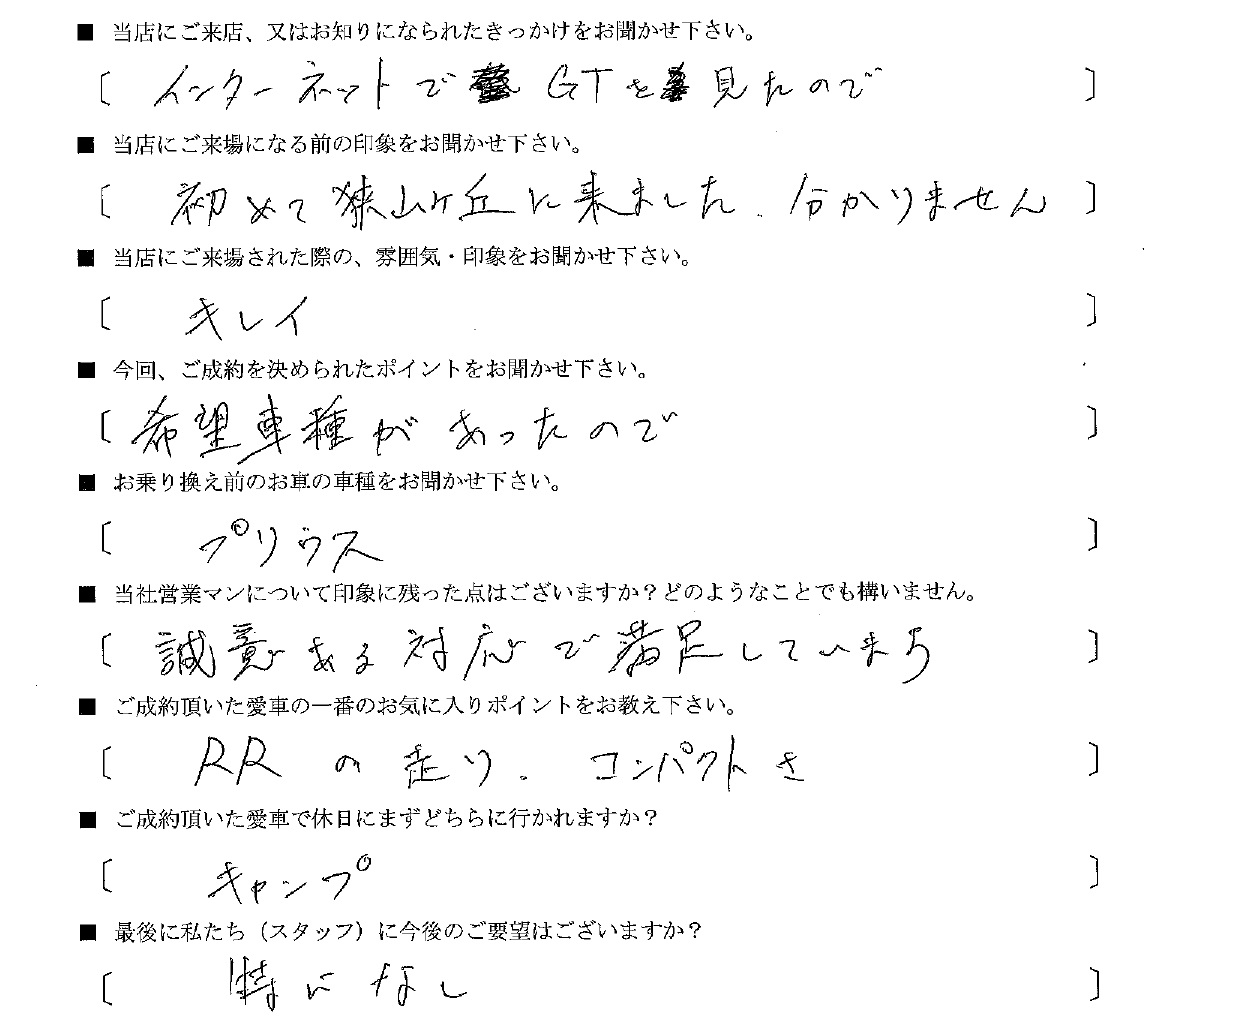 ■ 当店にご来店、又はお知りになられたきっかけをお聞かせ下さい。
〔 インターネットで GTを 見たので 〕
■ 当店にご来場になる前の印象をお聞かせ下さい。
〔 初めて狭山ヶ丘に来ました、分かりません 〕
■ 当店にご来場された際の、雰囲気・印象をお聞かせ下さい。
〔 キレイ 〕
■ 今回、ご成約を決められたポイントをお聞かせ下さい。
〔 希望車種があったので 〕
■ お乗り換え前のお車の車種をお聞かせ下さい。
〔 プリウス 〕
■ 当社営業マンについて印象に残った点はございますか？どのようなことでも構いません。
〔 誠意ある対応で満足しています 〕
■ ご成約頂いた愛車の一番のお気に入りポイントをお教え下さい。
〔 RRの走り、コンパクトさ 〕
■ ご成約頂いた愛車で休日にまずどちらに行かれますか？
〔 キャンプ 〕
■ 最後に私たち（スタッフ）に今後のご要望はございますか？
〔 特になし 〕